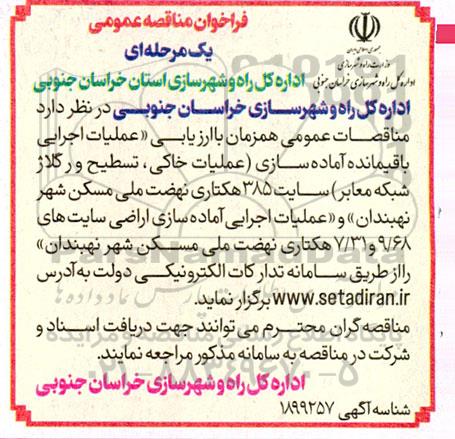 فراخوان مناقصه عمومی
یک مرحله‌ای
جمهوری اسلامی ایران
وزارت راه و شهرسازی
اداره کل راه و شهرسازی خراسان جنوبی
اداره کل راه و شهرسازی استان خراسان جنوبی
اداره کل راه و شهرسازی خراسان جنوبی در نظر دارد
مناقصات عمومی همزمان با ارزیابی «عملیات اجرایی
باقیمانده آماده سازی (عملیات خاکی، تسطیح و رگلاژ
شبکه معابر) سایت ۳۸۵ هکتاری نهضت ملی مسکن شهر
نهبندان» و «عملیات اجرایی آماده سازی اراضی سایت های
۹/۶۸ و ۷/۳۱ هکتاری نهضت ملی مسکن شهر نهبندان»
را از طریق سامانه تدارکات الکترونیکی دولت به آدرس
www.setadiran.ir برگزار نماید.
مناقصه گران محترم می توانند جهت دریافت اسناد و
شرکت در مناقصه به سامانه مذکور مراجعه نمایند.
اداره کل راه و شهرسازی خراسان جنوبی
شناسه آگهی ۱۸۹۹۲۵۷
ParsNamadData
۰۲۱-۸۸۳۴۹۶۷۰-۵